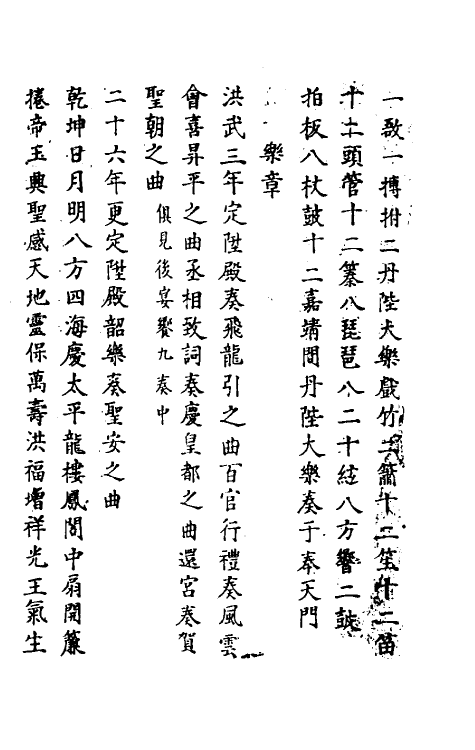 一敔一搏拊二丹陛大樂戲竹二簫十二笙十二笛
十二頭管十二䉡八琵琶八二十絃八方響二鼓
拍板八杖鼓十二嘉靖間丹陛大樂奏于奉天門
樂章
洪武三年定陞殿奏飛龍引之曲百官行禮奏風雲
會喜昇平之曲丞相致詞奏慶皇都之曲還宮奏賀
聖朝之曲俱見後宴饗九奏中
二十六年更定陞殿韶樂奏聖安之曲
乾坤日月明八方四海慶太平龍樓鳳閣中扇開簾
捲帝王興聖感天地靈保萬壽洪福增祥光王氣生